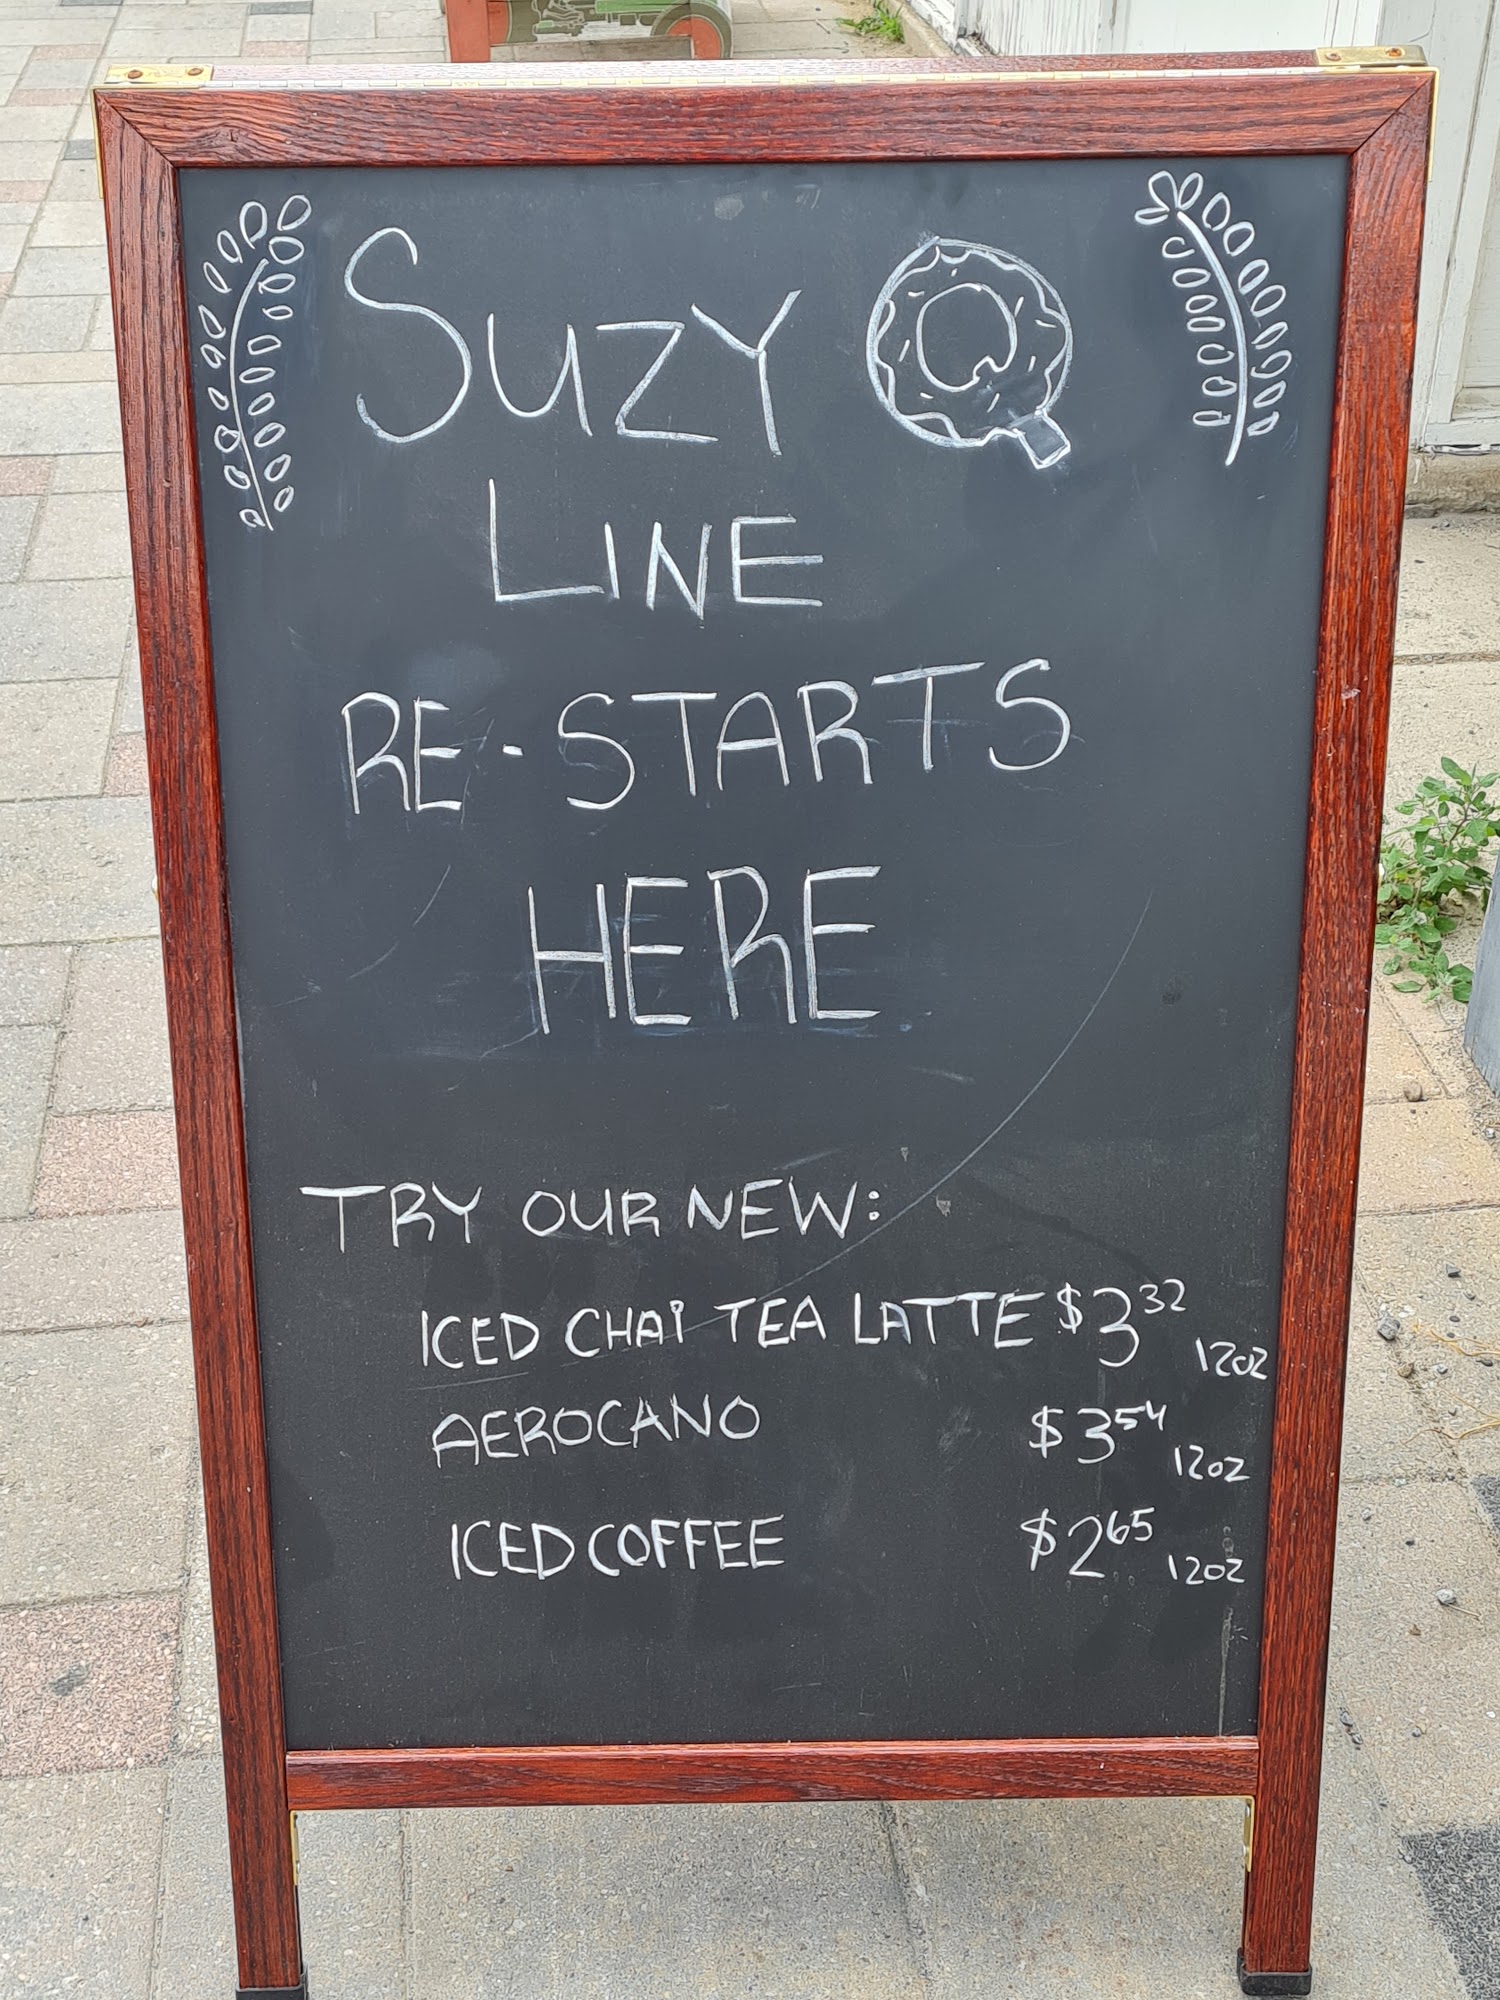 SUZY Q
LINE
RE-STARTS
HERE
TRY OUR NEW:
ICED CHAI TEA LATTE $3 32 12oz
AEROCANO $3 54 12oz
ICED COFFEE $2 65 12oz